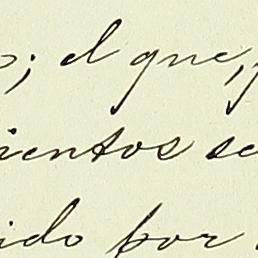 ; el que,
ientos se
ido por